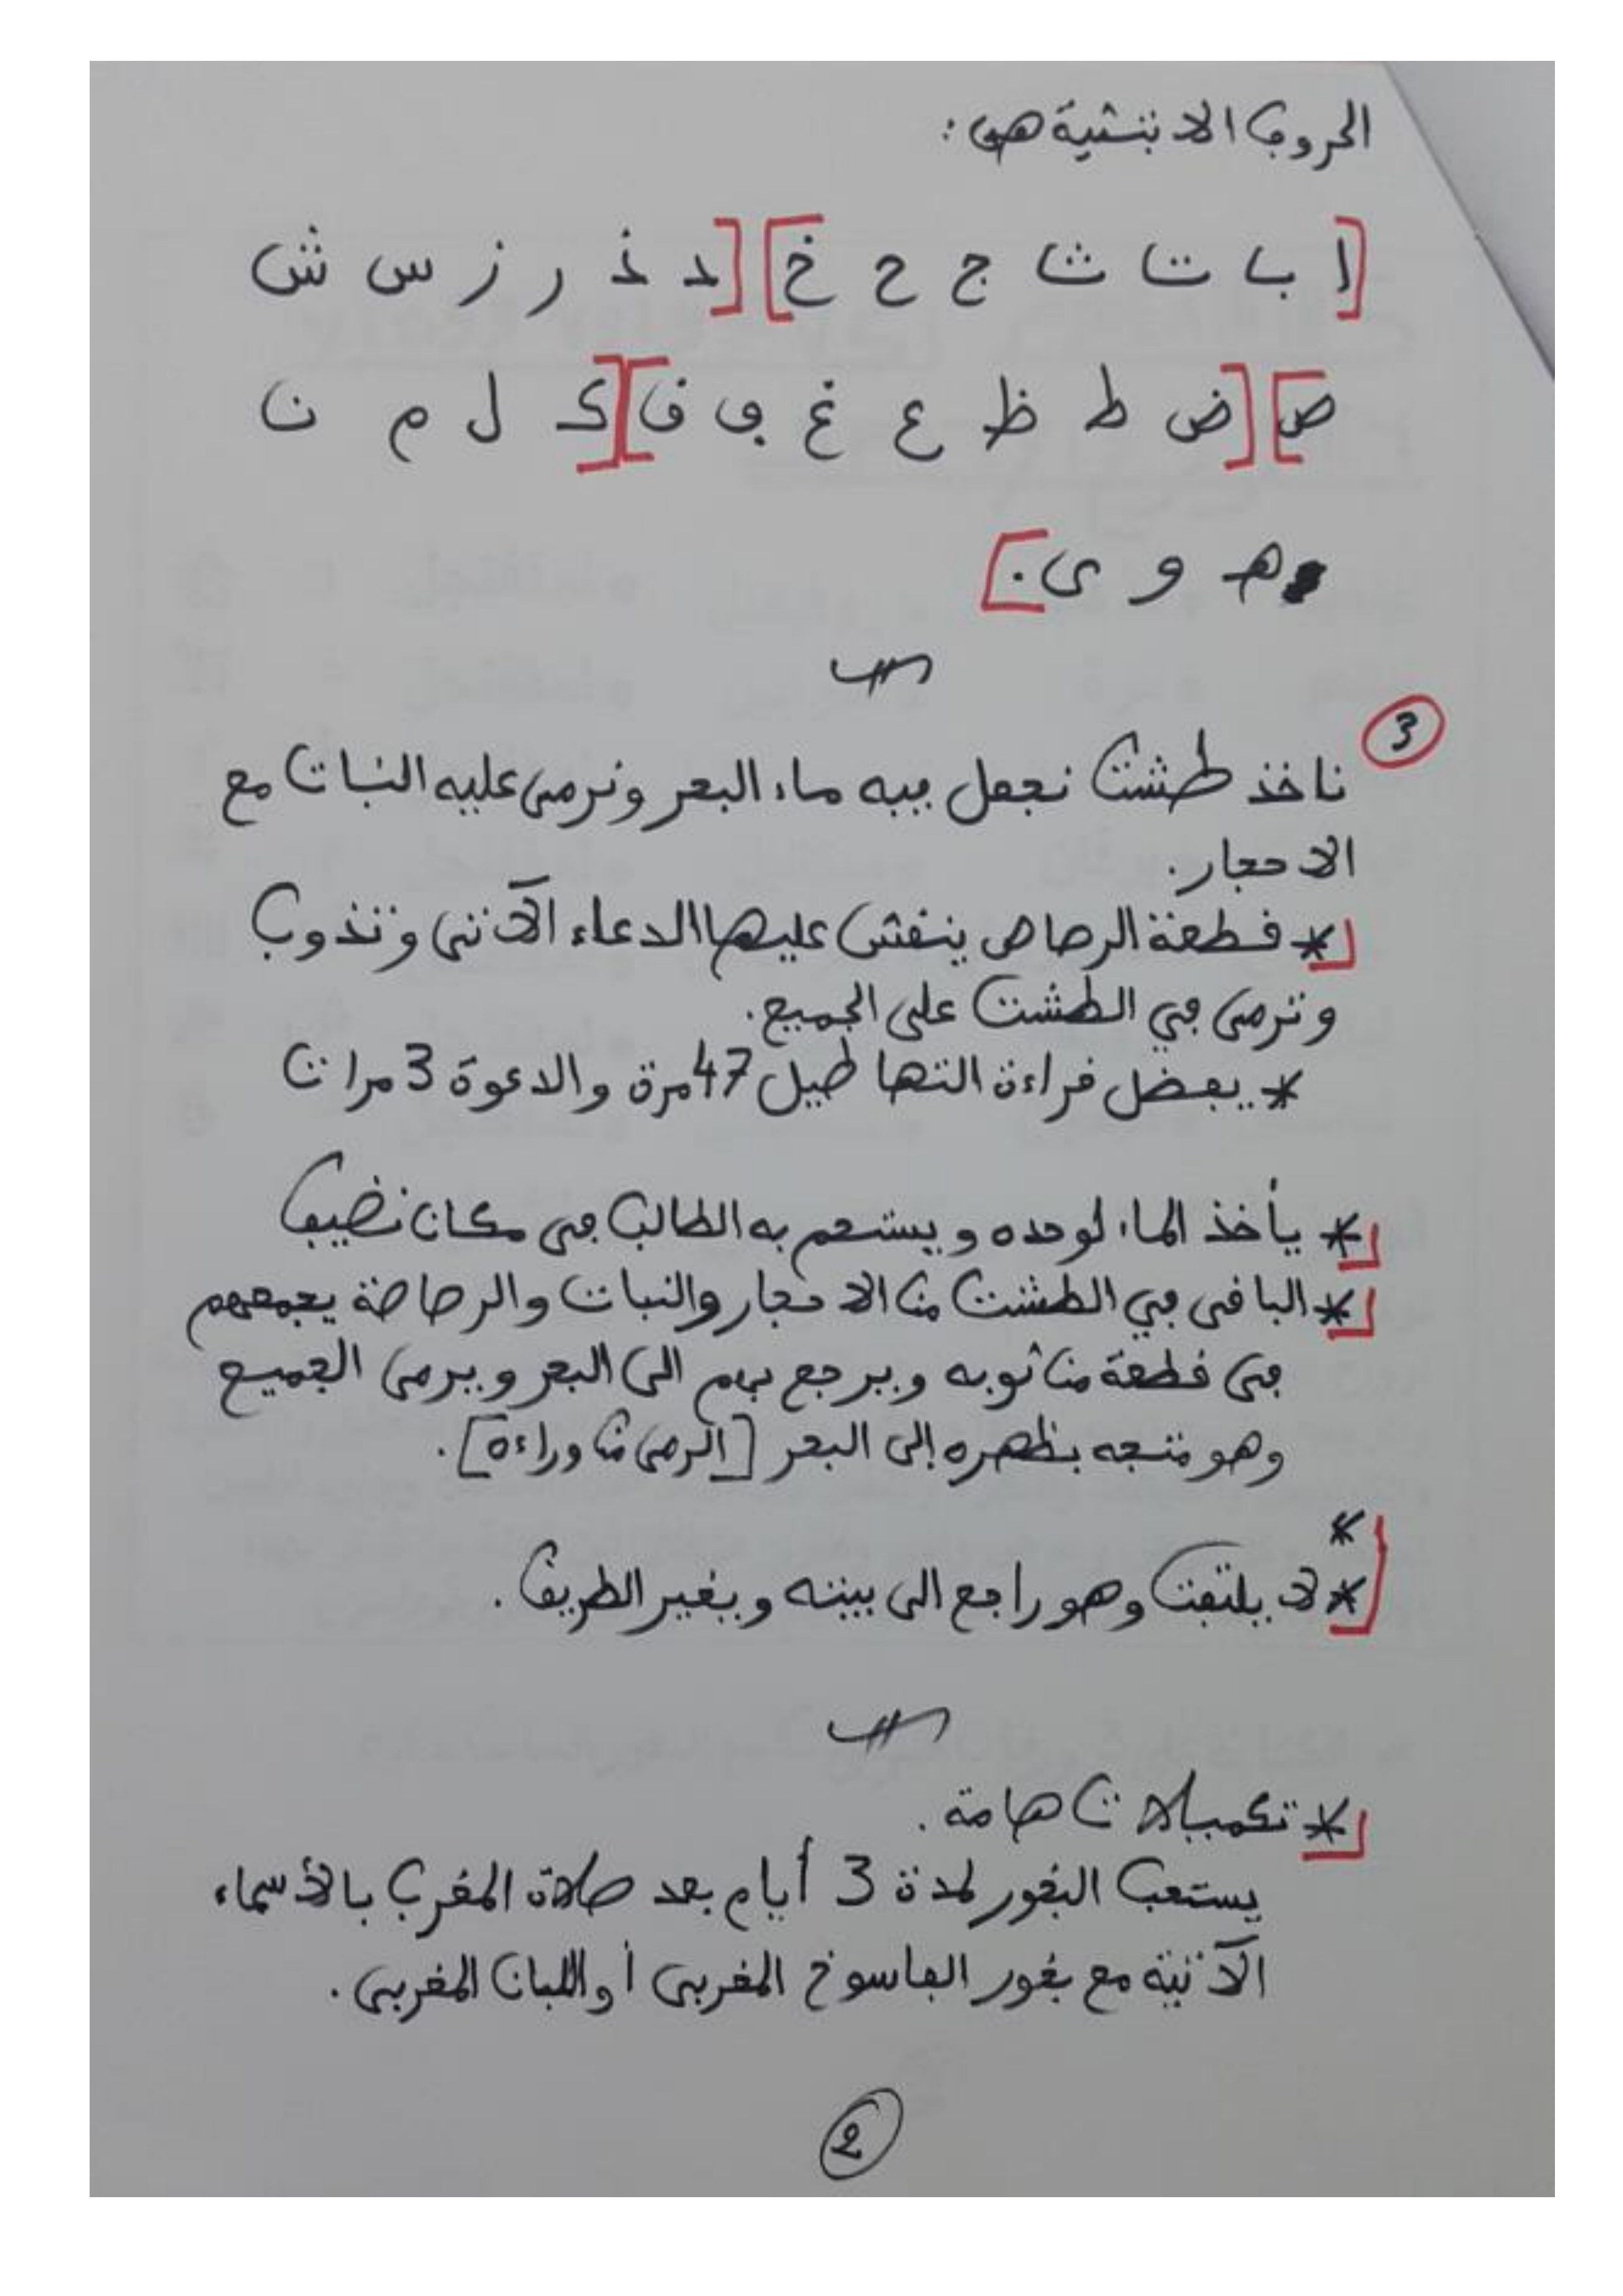 الحروف الابتثية هي:
[ا ب ت ث ج ح خ] [د ذ ر ز س ش
ص] [ض ط ظ ع غ ف ق] [ك ل م ن
هـ و ى.]
3
ناخذ طشت نجعل فيه ماء البحر ونرمى عليه النبات مع
الاحجار.
* قطعة الرصاص ينقش عليها الدعاء الآتى وتذوب
وترمى في الطشت على الجميع.
* يفضل قراءة التهاطيل 47 مرة والدعوة 3 مرات
* يأخذ الماء لوحده ويستحم به الطالب فى مكان نضيف
* الباقى في الطشت من الاحجار والنبات والرصاصة يجمعهم
فى قطعة من ثوبه ويرجع بهم الى البحر ويرمى الجميع
وهو متجه بظهره إلى البحر [الرمى من وراءه].
*
* لا يلتفت وهو راجع الى بيته ويغير الطريق.
* تكميلات هامة.
يستحب البخور لمدة 3 أيام بعد صلاة المغرب بالأسماء
الآتية مع بخور الفاسوخ المغربى أو اللبان المغربى.
2